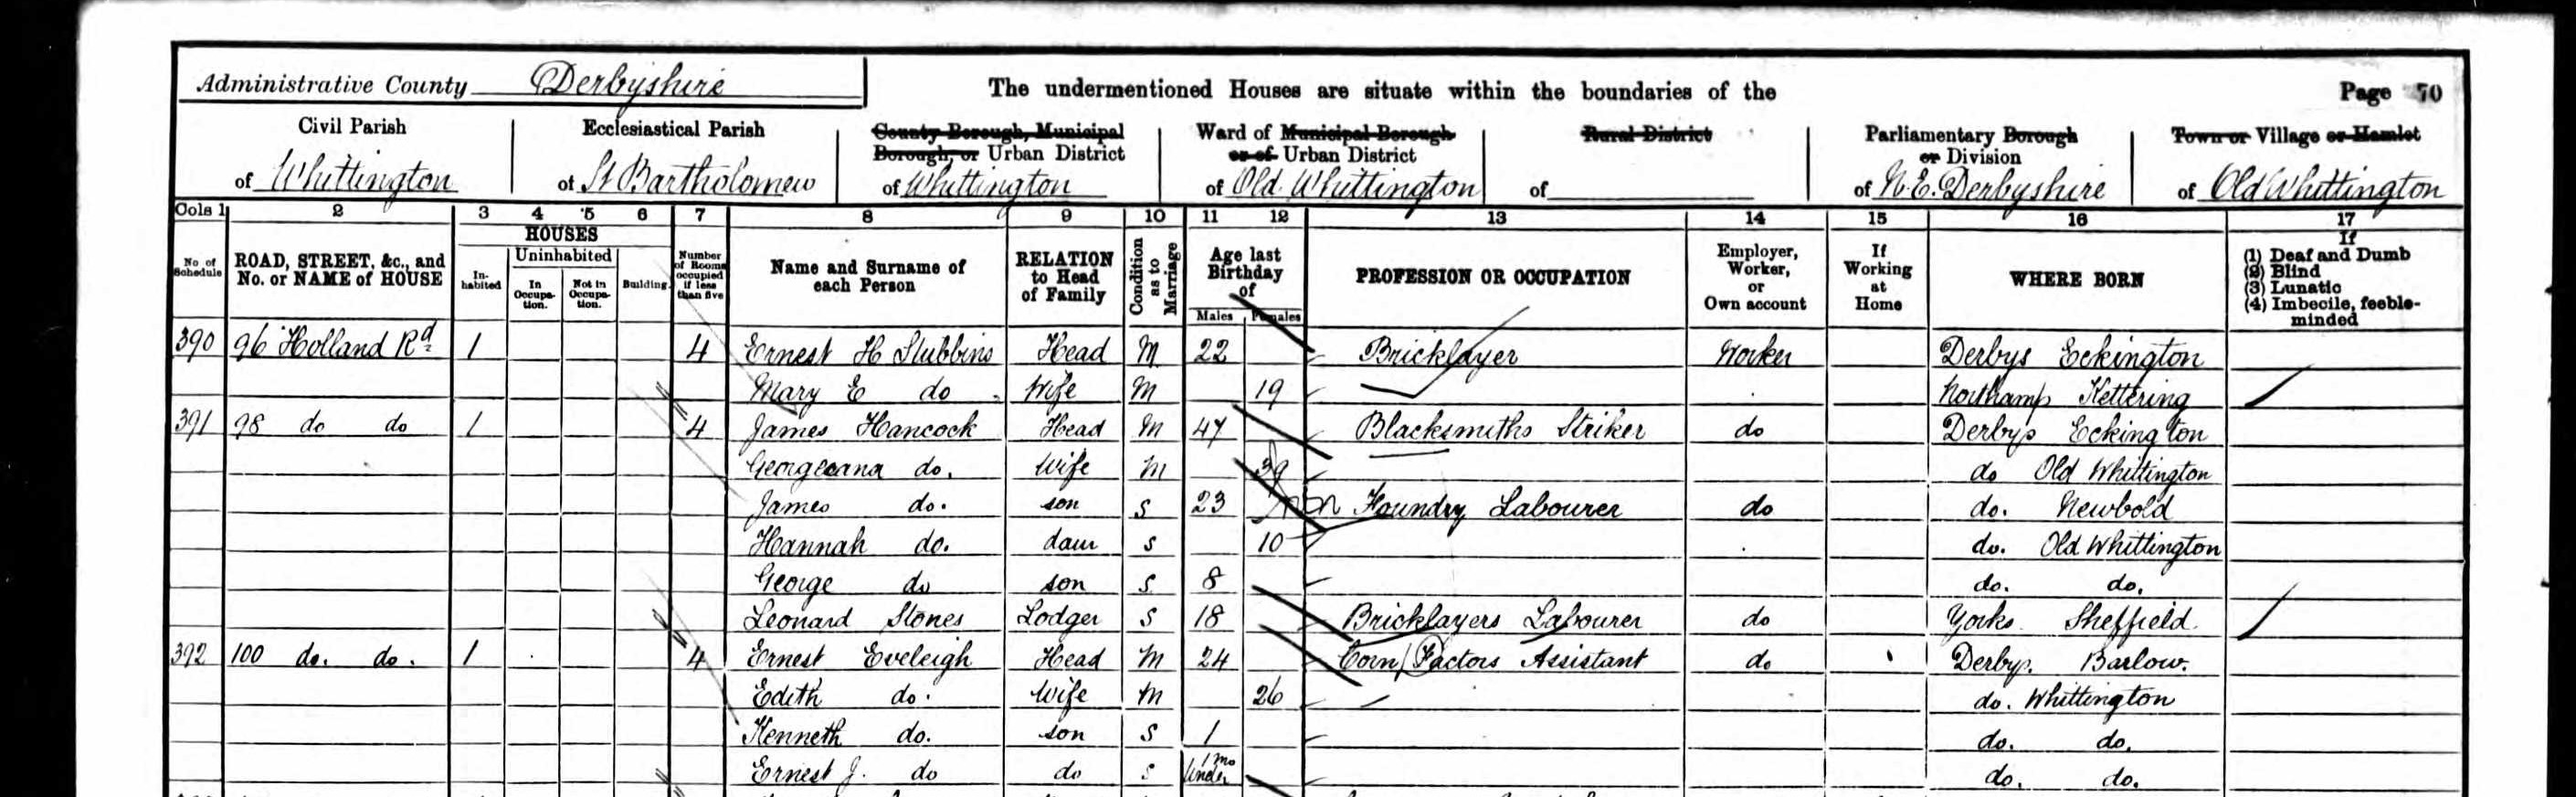 Administrative County Derbyshire
The undermentioned Houses are situate within the boundaries of the
Page 70
Civil Parish of Whittington
Ecclesiastical Parish of St Bartholomew
County Borough, Municipal Borough, or Urban District of Whittington
Ward of Municipal Borough or of Urban District of Old Whittington
Rural District of
Parliamentary Borough or Division of N.E. Derbyshire
Town or Village or Hamlet of Old Whittington
Cols 1 2 3 4 5 6 7 8 9 10 11 12 13 14 15 16 17
No of Schedule
ROAD, STREET, &c., and No. or NAME of HOUSE
HOUSES
In-habited
Uninhabited
In Occupa-tion.
Not in Occupa-tion.
Building.
Number of Rooms occupied if less than five
Name and Surname of each Person
RELATION to Head of Family
Condition as to Marriage
Age last Birthday of
Males Females
PROFESSION OR OCCUPATION
Employer, Worker, or Own account
If Working at Home
WHERE BORN
If
(1) Deaf and Dumb
(2) Blind
(3) Lunatic
(4) Imbecile, feeble-minded
390 96 Holland Rd 1 4 Ernest H Stubbins Head M 22 Bricklayer Worker Derbys Eckington
Mary E do Wife M 19 Northamp Kettering
391 98 do do 1 4 James Hancock Head M 47 Blacksmiths Striker do Derbys Eckington
Georgeana do. Wife M 39 do Old Whittington
James do. son S 23 Foundry Labourer do do. Newbold
Hannah do. daur S 10 do. Old Whittington
George do son S. 8 do. do.
Leonard Stones Lodger S 18 Bricklayers Labourer do Yorks Sheffield
392 100 do. do. 1 4 Ernest Eveleigh Head M 24 Corn Factors Assistant do Derbys. Barlow.
Edith do. Wife M 26 do. Whittington
Kenneth do. son S 1 do. do.
Ernest J. do do S under 1 mo do. do.